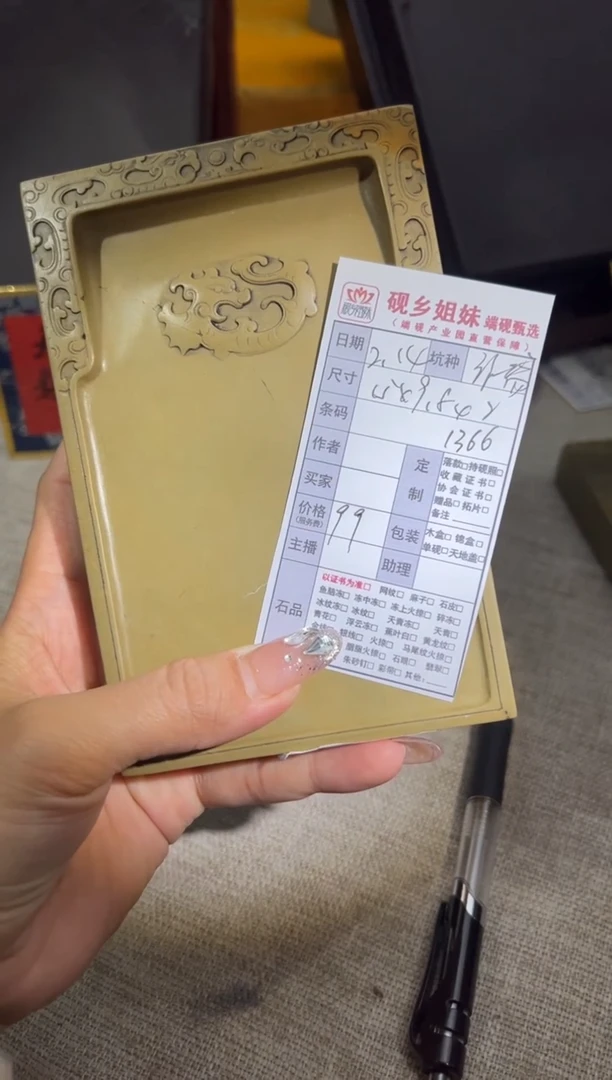 砚乡姐妹 端砚甄选
（端砚产业园直营保障）
日期 2.14 坑种
尺寸
条码 1366
作者
定制 落款□持砚照□
收藏证书□
协会证书□
赠品□拓片□
备注
买家
价格 99
(服务费)
包装 木盒□锦盒□
单砚□天地盖□
主播
助理
石品 以证书为准□
鱼脑冻□ 冻中冻□ 冻上火捺□ 碎冻□
冰纹冻□ 冰纹□ 天青冻□ 天青□
青花□ 浮云冻□ 蕉叶白□ 黄龙纹□
银线□ 火捺□ 马尾纹火捺□
胭脂火捺□ 石眼□ 翡翠□
朱砂钉□ 彩带□ 其他:
网纹□ 麻子□ 石皮□